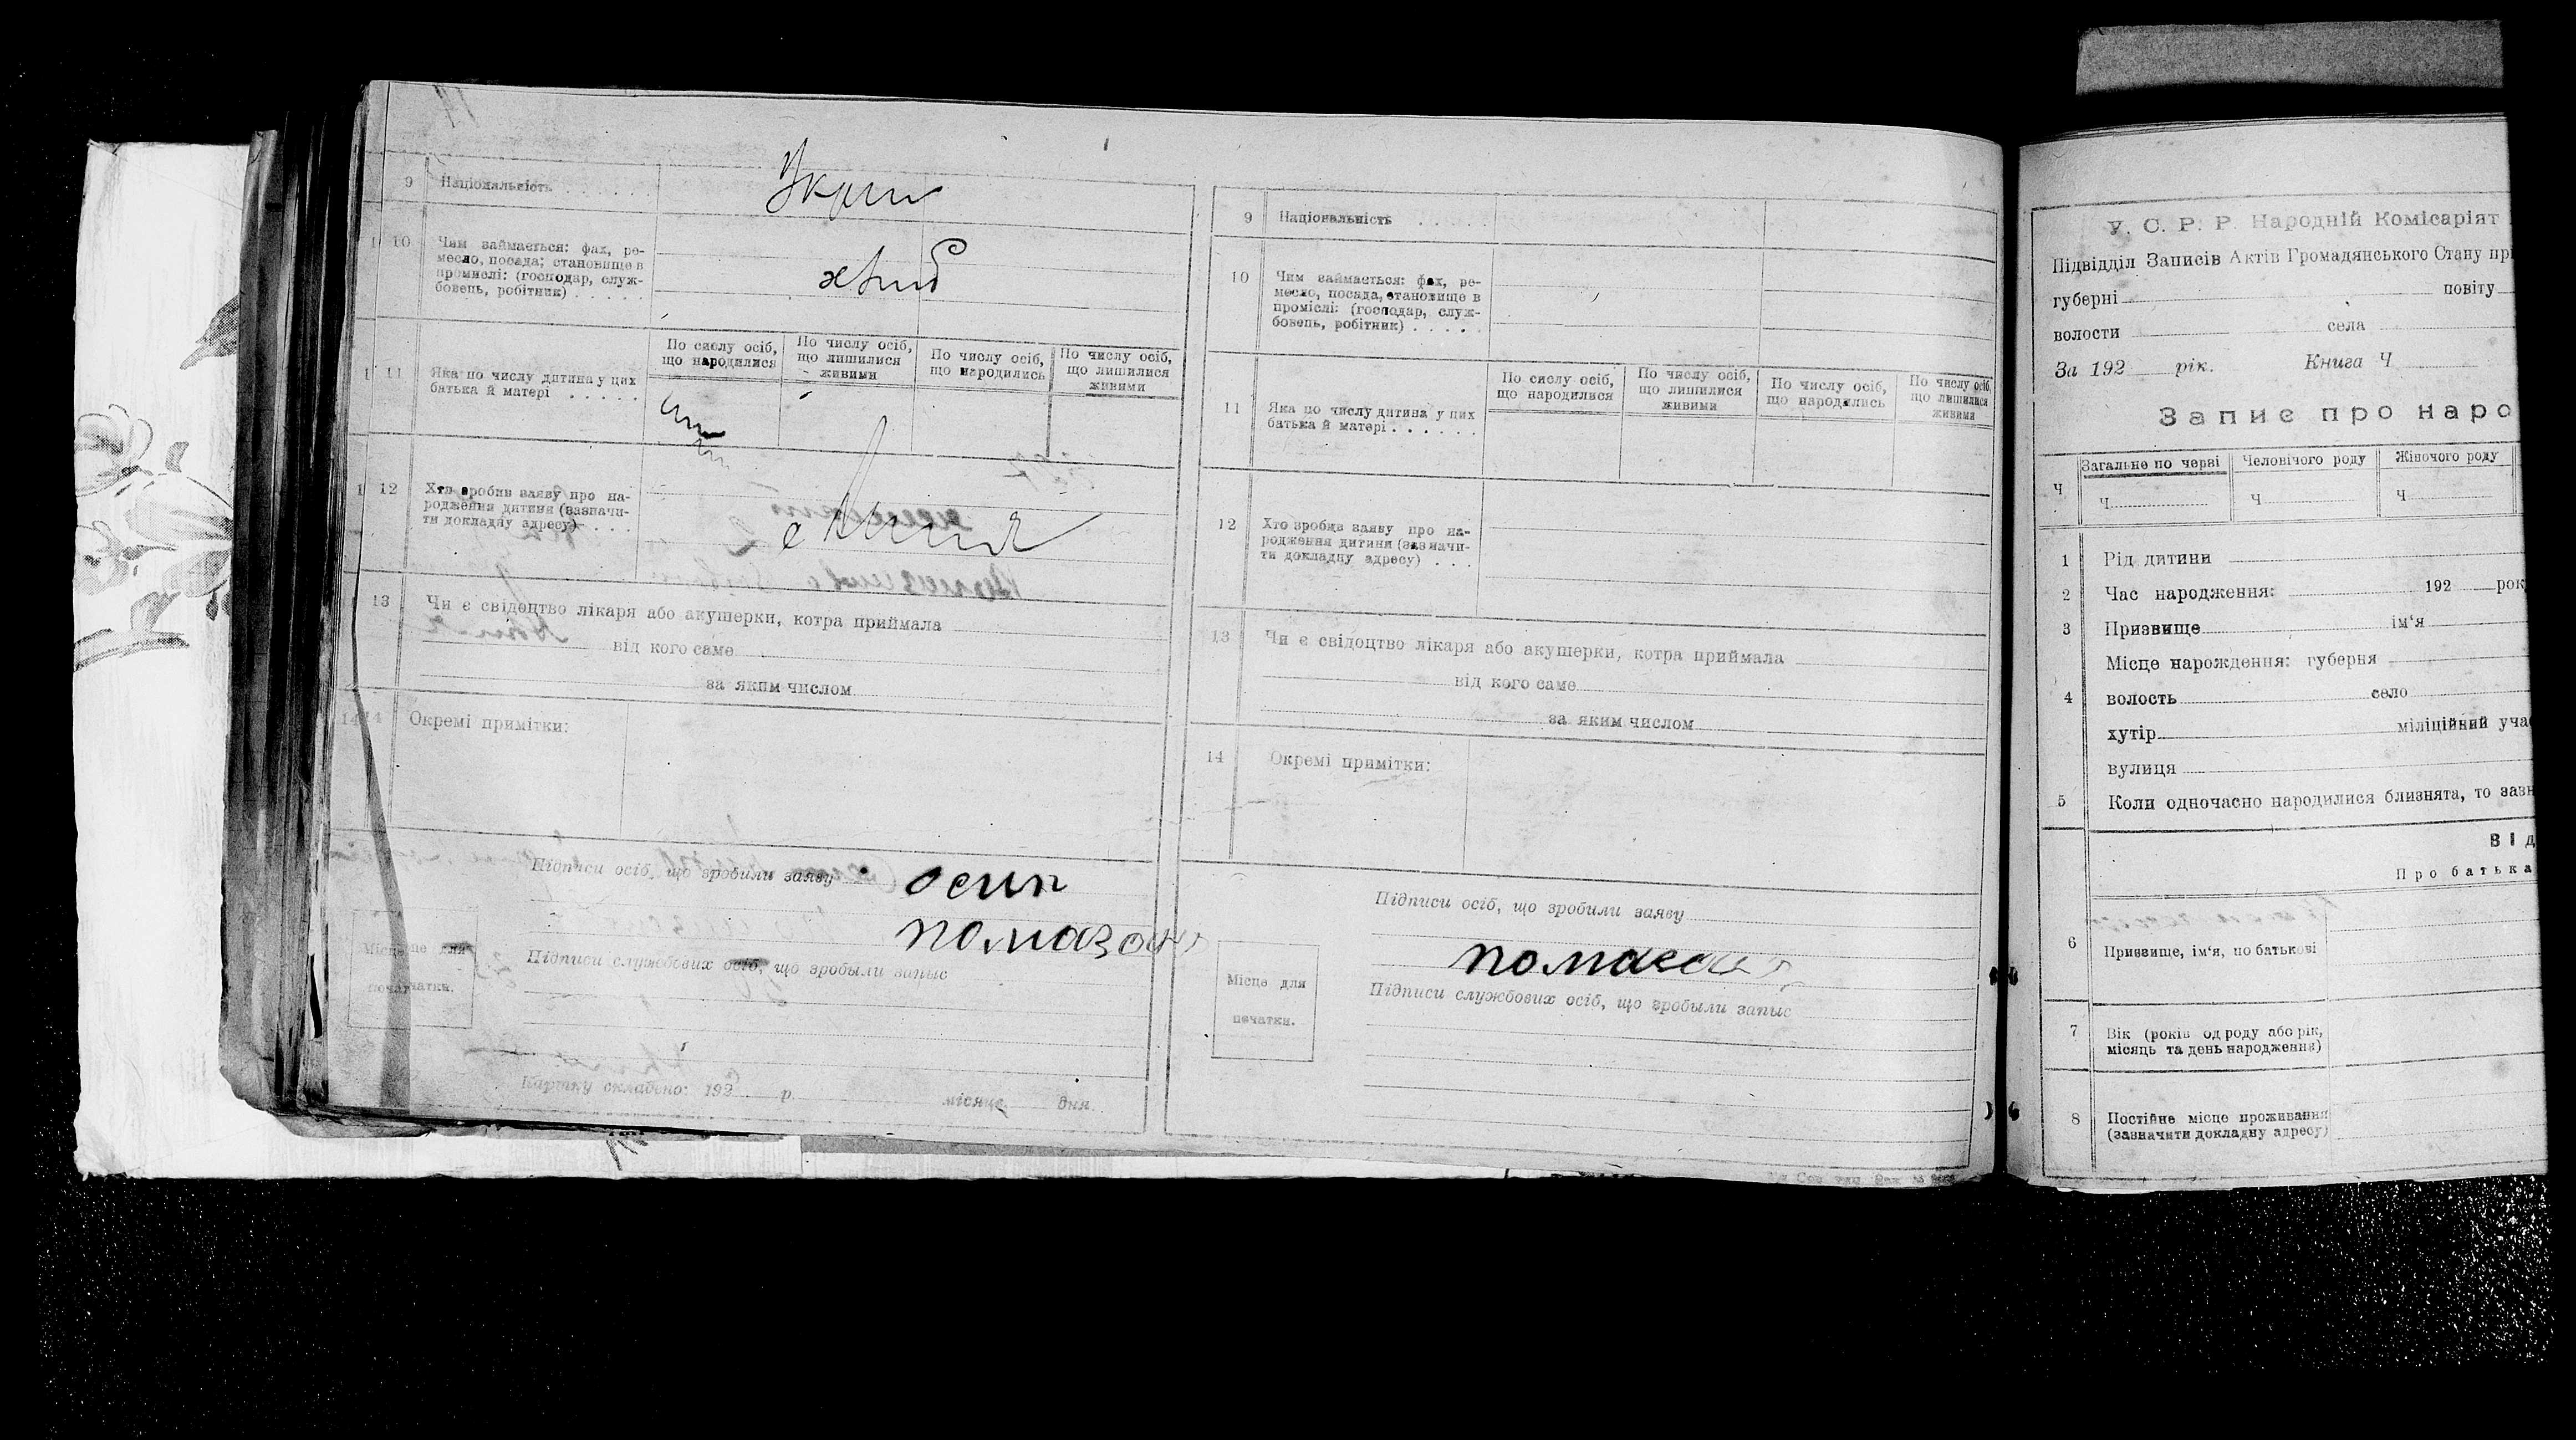 9 Національність . . . . . .
Укрти
1 10 Чим займається: фах, ре-
месло, посада; становище в
промислі: (господар, служ-
бовець, робітник) . . . . .
хліб
1 11 Яка по числу дитина у цих
батька й матері . . . . .
По сислу осіб,
що народилися
По числу осіб,
що лишилися
живими
По числу осіб,
що народились
По числу осіб,
що лишилися
живими
1 12 Хто зробив заяву про на-
родження дитини (зазначи-
ти докладну адресу) . . .
13 Чи є свідоцтво лікаря або акушерки, котра приймала
від кого саме
за яким числом
14 Окремі примітки:
Підписи осіб, що зробили заяву
осип
помазан
Підписи службових осіб, що зробыли запыс
Місце для
печатки.
Картку складено: 192 р. місяця дня.
9 Національність . . . . .
10 Чим займається: фах, ре-
месло, посада, становище в
проміслі: (господар, служ-
бовець, робітник) . . . . .
11 Яка по числу дитина у цих
батька й матері . . . . . .
По сислу осіб,
що народилися
По числу осіб,
що лишилися
живими
По числу осіб,
що народились
По числу осіб,
що лишилися
живими
12 Хто зробив заяву про на-
родження дитини (зазначи-
ти докладну адресу) . . .
13 Чи є свідоцтво лікаря або акушерки, котра приймала
від кого саме
за яким числом
14 Окремі примітки:
Підписи осіб, що зробили заяву
Підписи службових осіб, що зробыли запыс
Місце для
печатки.
У. С. Р. Р. Народній Комісаріят
Підвідділ Записів Актів Громадянського Стану при
губерні повіту
волости села
За 192 рік. Книга Ч
Запис про наро
Ч
Загальне по черві
Ч
Человічого роду
Ч
Жіночого роду
Ч
1 Рід дитини
2 Час народження: 192 рок
3 Призвище ім'я
Місце нарождення: губерня
4 волость село
хутір міліційний учас
вулиця
5 Коли одночасно народилися близнята, то зазн
Від
Про батька
6 Призвище, ім'я, по батькові
7 Вік (років од роду або рік,
місяць та день народження)
8 Постійне місце проживання
(зазначити докладну адресу)